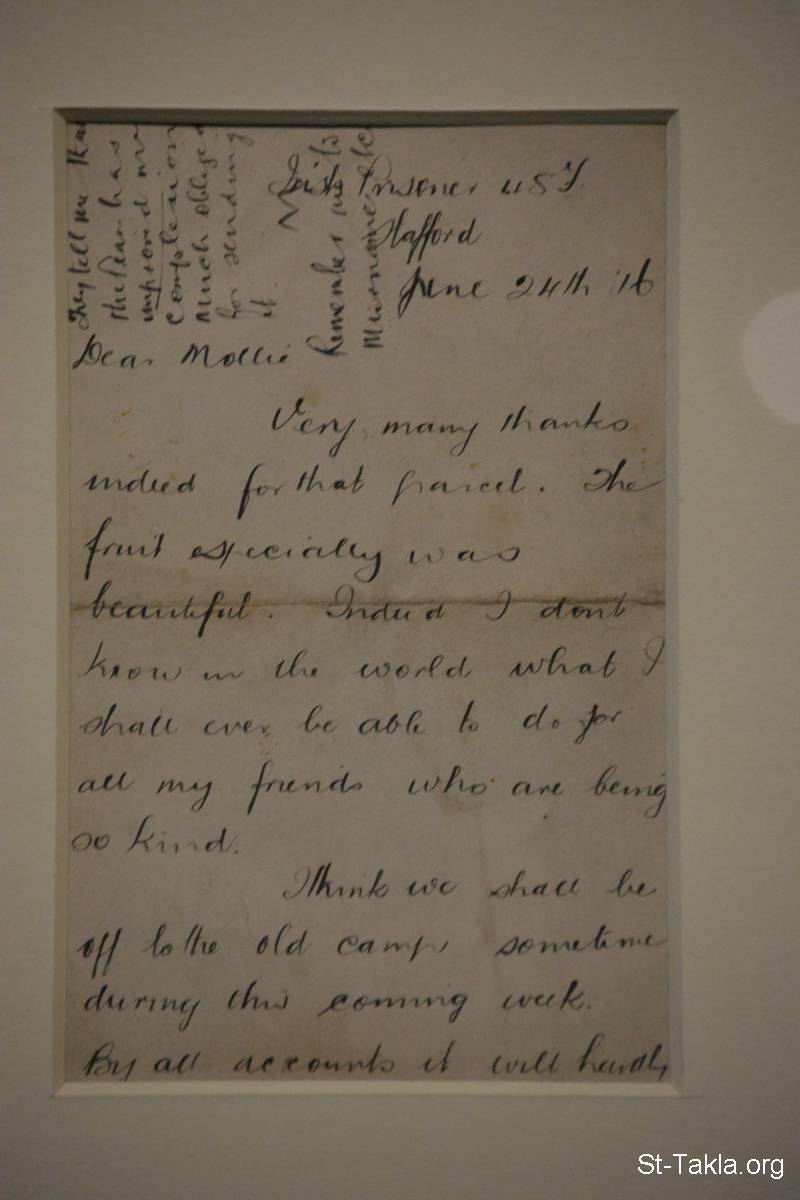 They tell me that
the Pear has
improved my
complexion
much obliged
for sending
it.
Remember me to
Irish Prisoner 48 F.
Stafford
June 24th '16
Dear Mollie
Very many thanks
indeed for that parcel. The
fruit especially was
beautiful. Indeed I dont
know in the world what I
shall ever be able to do for
all my friends who are being
so kind.
I think we shall be
off to the old camp sometime
during this coming week.
By all accounts it will hardly
St-Takla.org